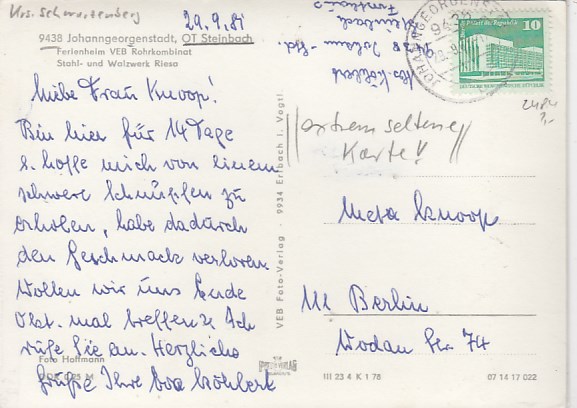 Krs. Schwarzenberg
29.9.81
9438 Johanngeorgenstadt, OT Steinbach
Ferienheim VEB Rohrkombinat
Stahl- und Walzwerk Riesa
Liebe Frau Knoop!
Bin hier für 14 Tage
u. hoffe mich von einem
schwere Schnupfen zu
erholen, habe dadurch
den Geschmack verloren.
Wollen wir uns Ende
Okt. mal treffen? Ich
rufe Sie an. Herzliche
Grüße Ihre Köhlert
Foto Hoffmann
VEB Foto-Verlag · 9934 Erlbach i. Vogtl.
Köhlert
9438 Johann-
Steinbach
JOHANNGEORGENSTADT
9438
10
DEUTSCHE DEMOKRATISCHE REPUBLIK
extrem seltene
Karte!
Meta Knoop
Berlin
Wodan Str. 74
III 23 4 K 1 78
07 14 17 022